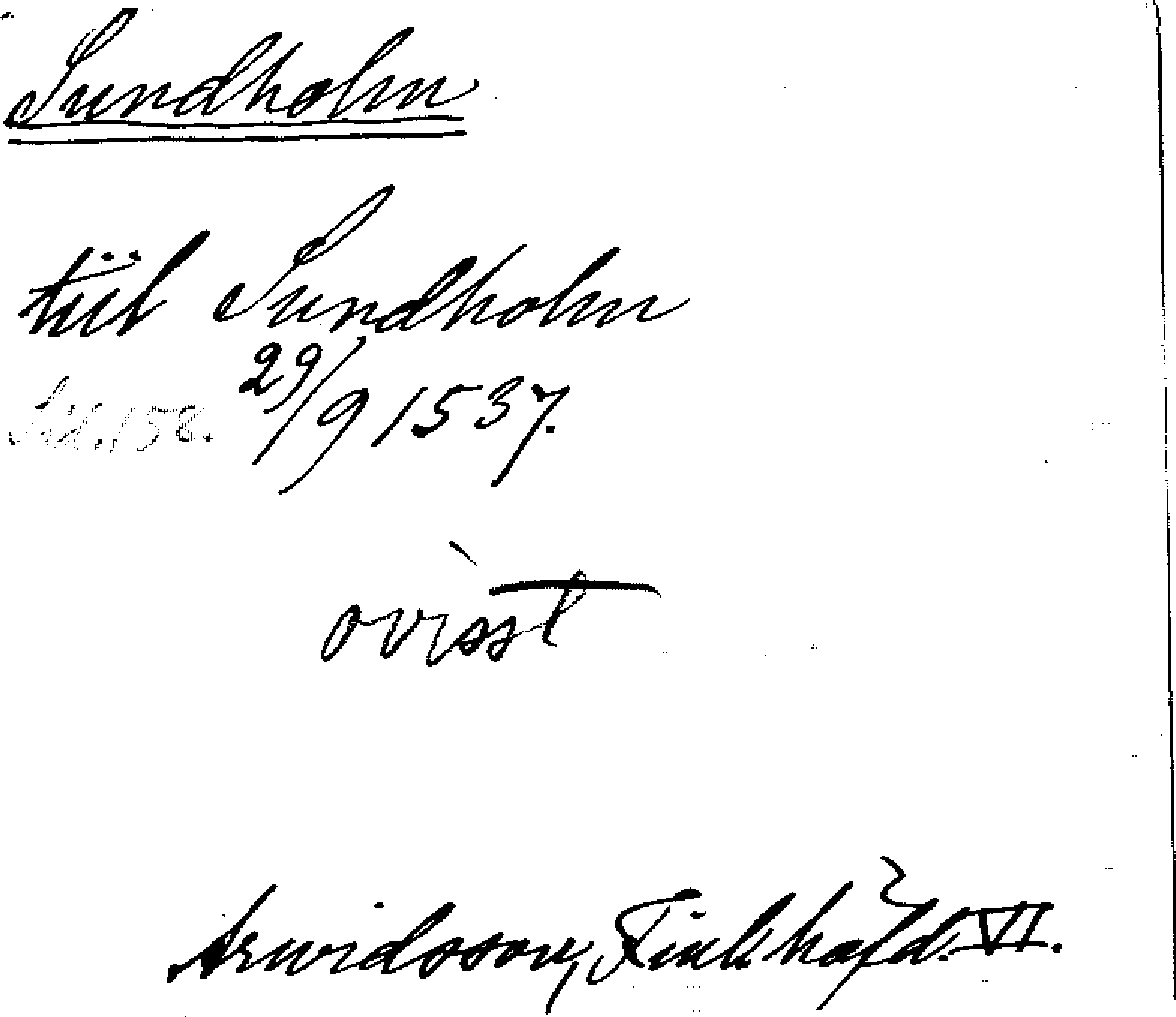 Sundholm
tiil Sundholm
Sid. 158. 29/9 1537.
ovisst
Arwidsson, Finl. häfd. VI.